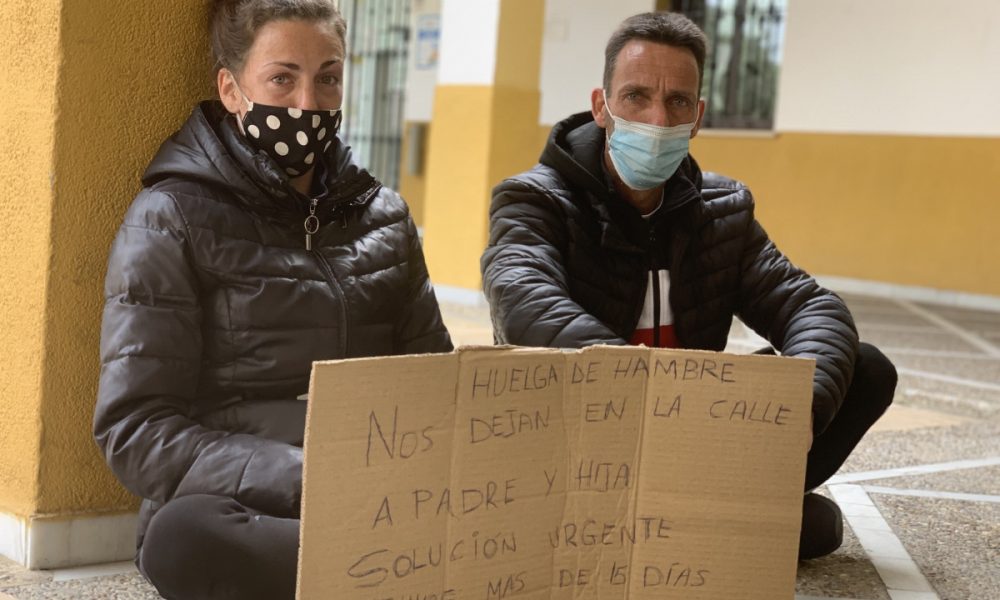 HUELGA DE HAMBRE
NOS DEJAN EN LA CALLE
A PADRE Y HIJA
SOLUCIÓN URGENTE
MAS DE 15 DÍAS